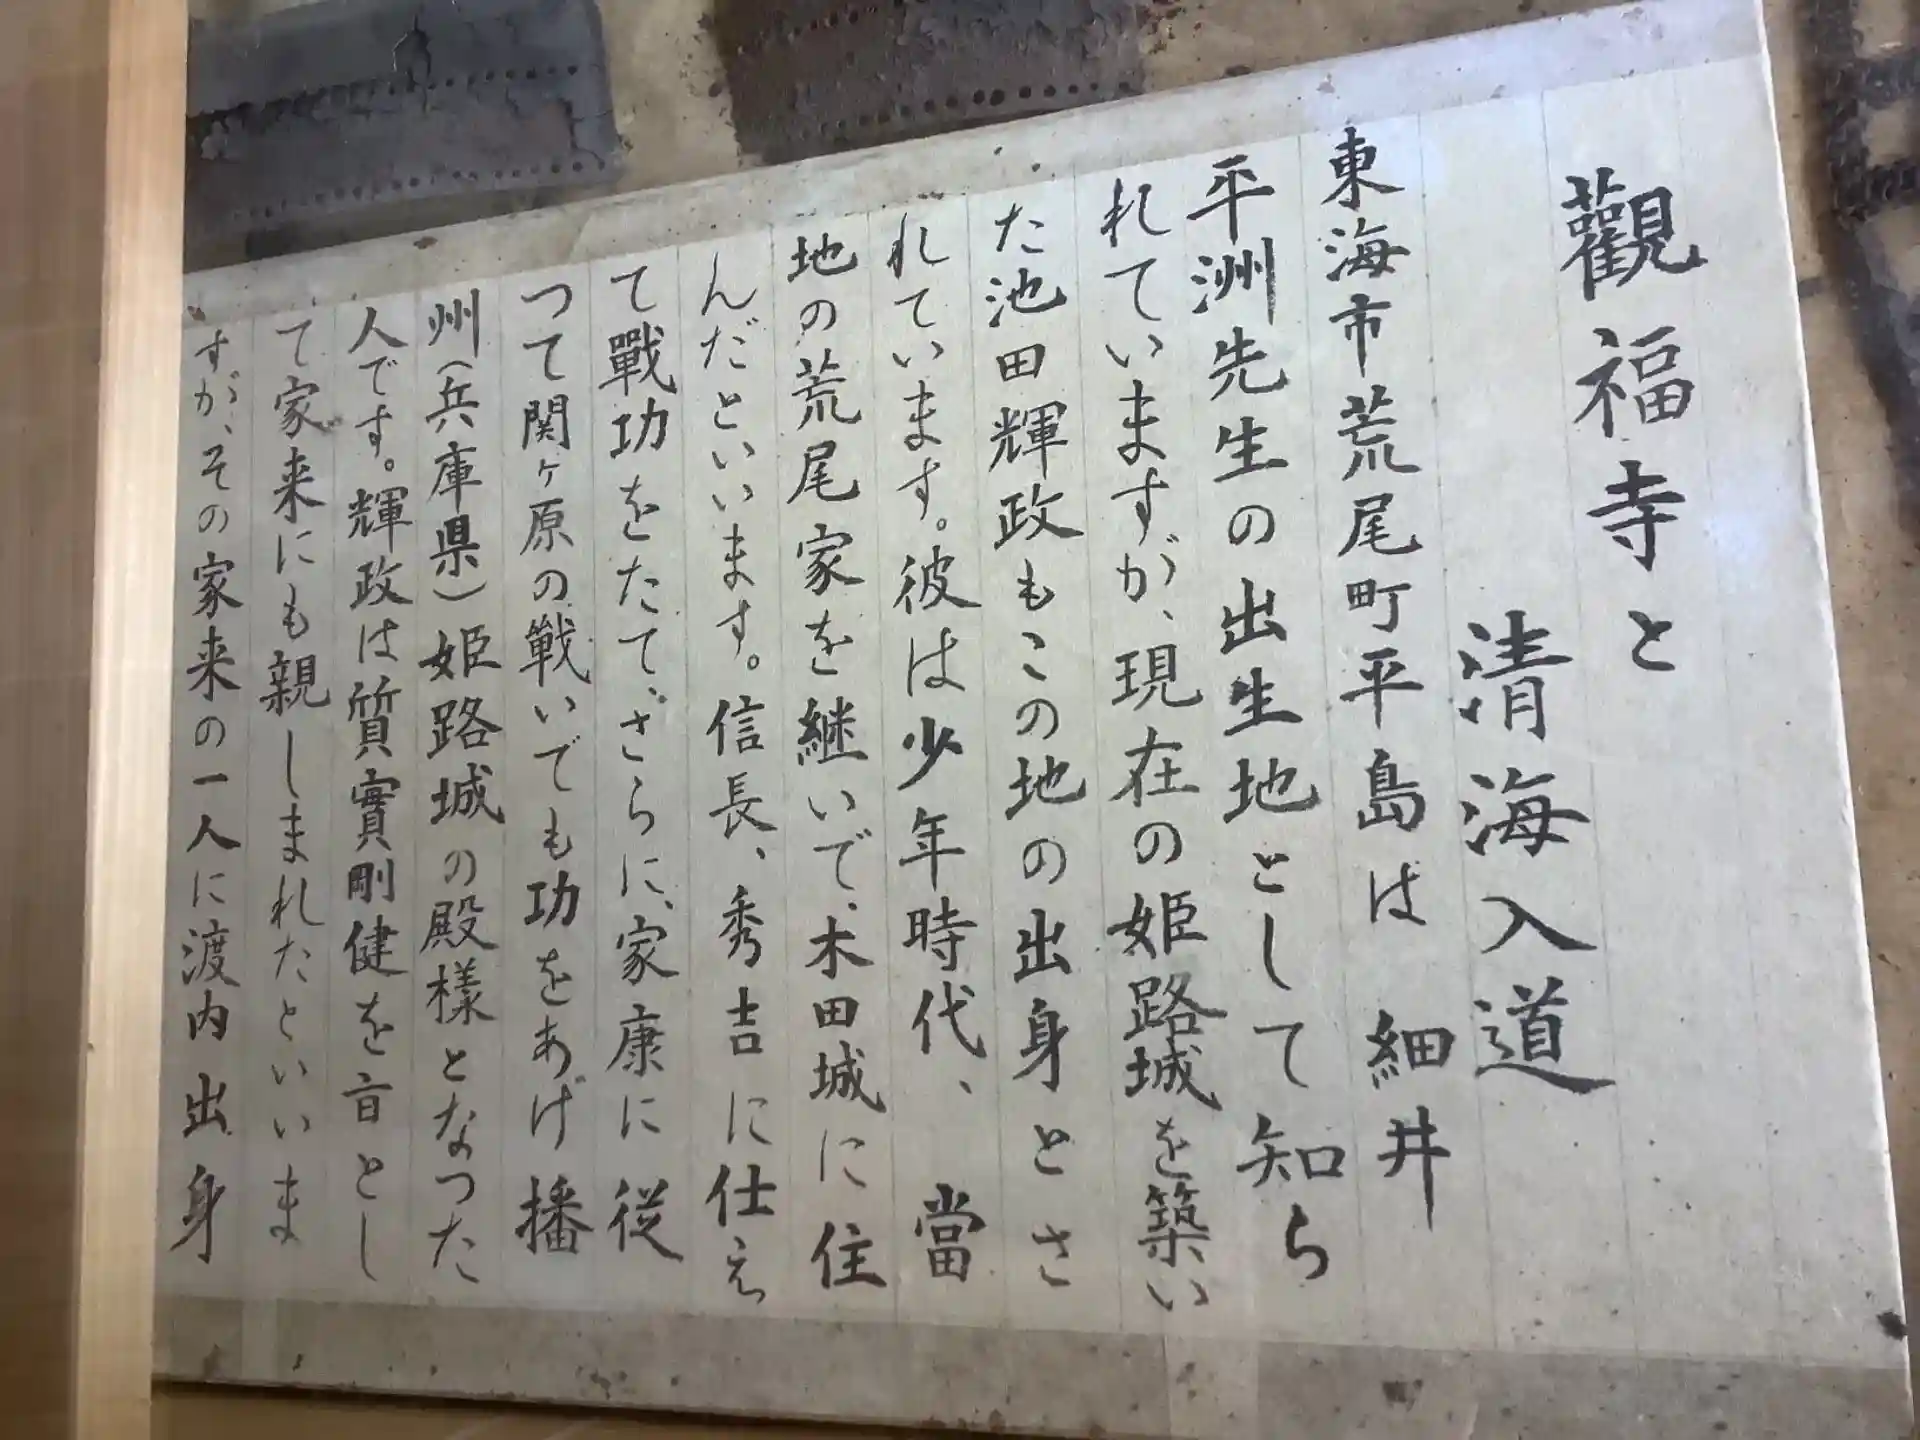 觀福寺と
清海入道
東海市荒尾町平島は 細井
平洲先生の出生地として知ら
れていますが、現在の姫路城を築い
た池田輝政もこの地の出身とさ
れています。彼は少年時代、當
地の荒尾家を継いで、木田城に住
んだといいます。信長、秀吉に仕え
て戰功をたて、さらに、家康に従
つて関ヶ原の戦いでも功をあげ播
州(兵庫県)姫路城の殿様となつた
人です。輝政は質實剛健を旨とし
て家来にも親しまれたといいま
すが、その家来の一人に渡内出身